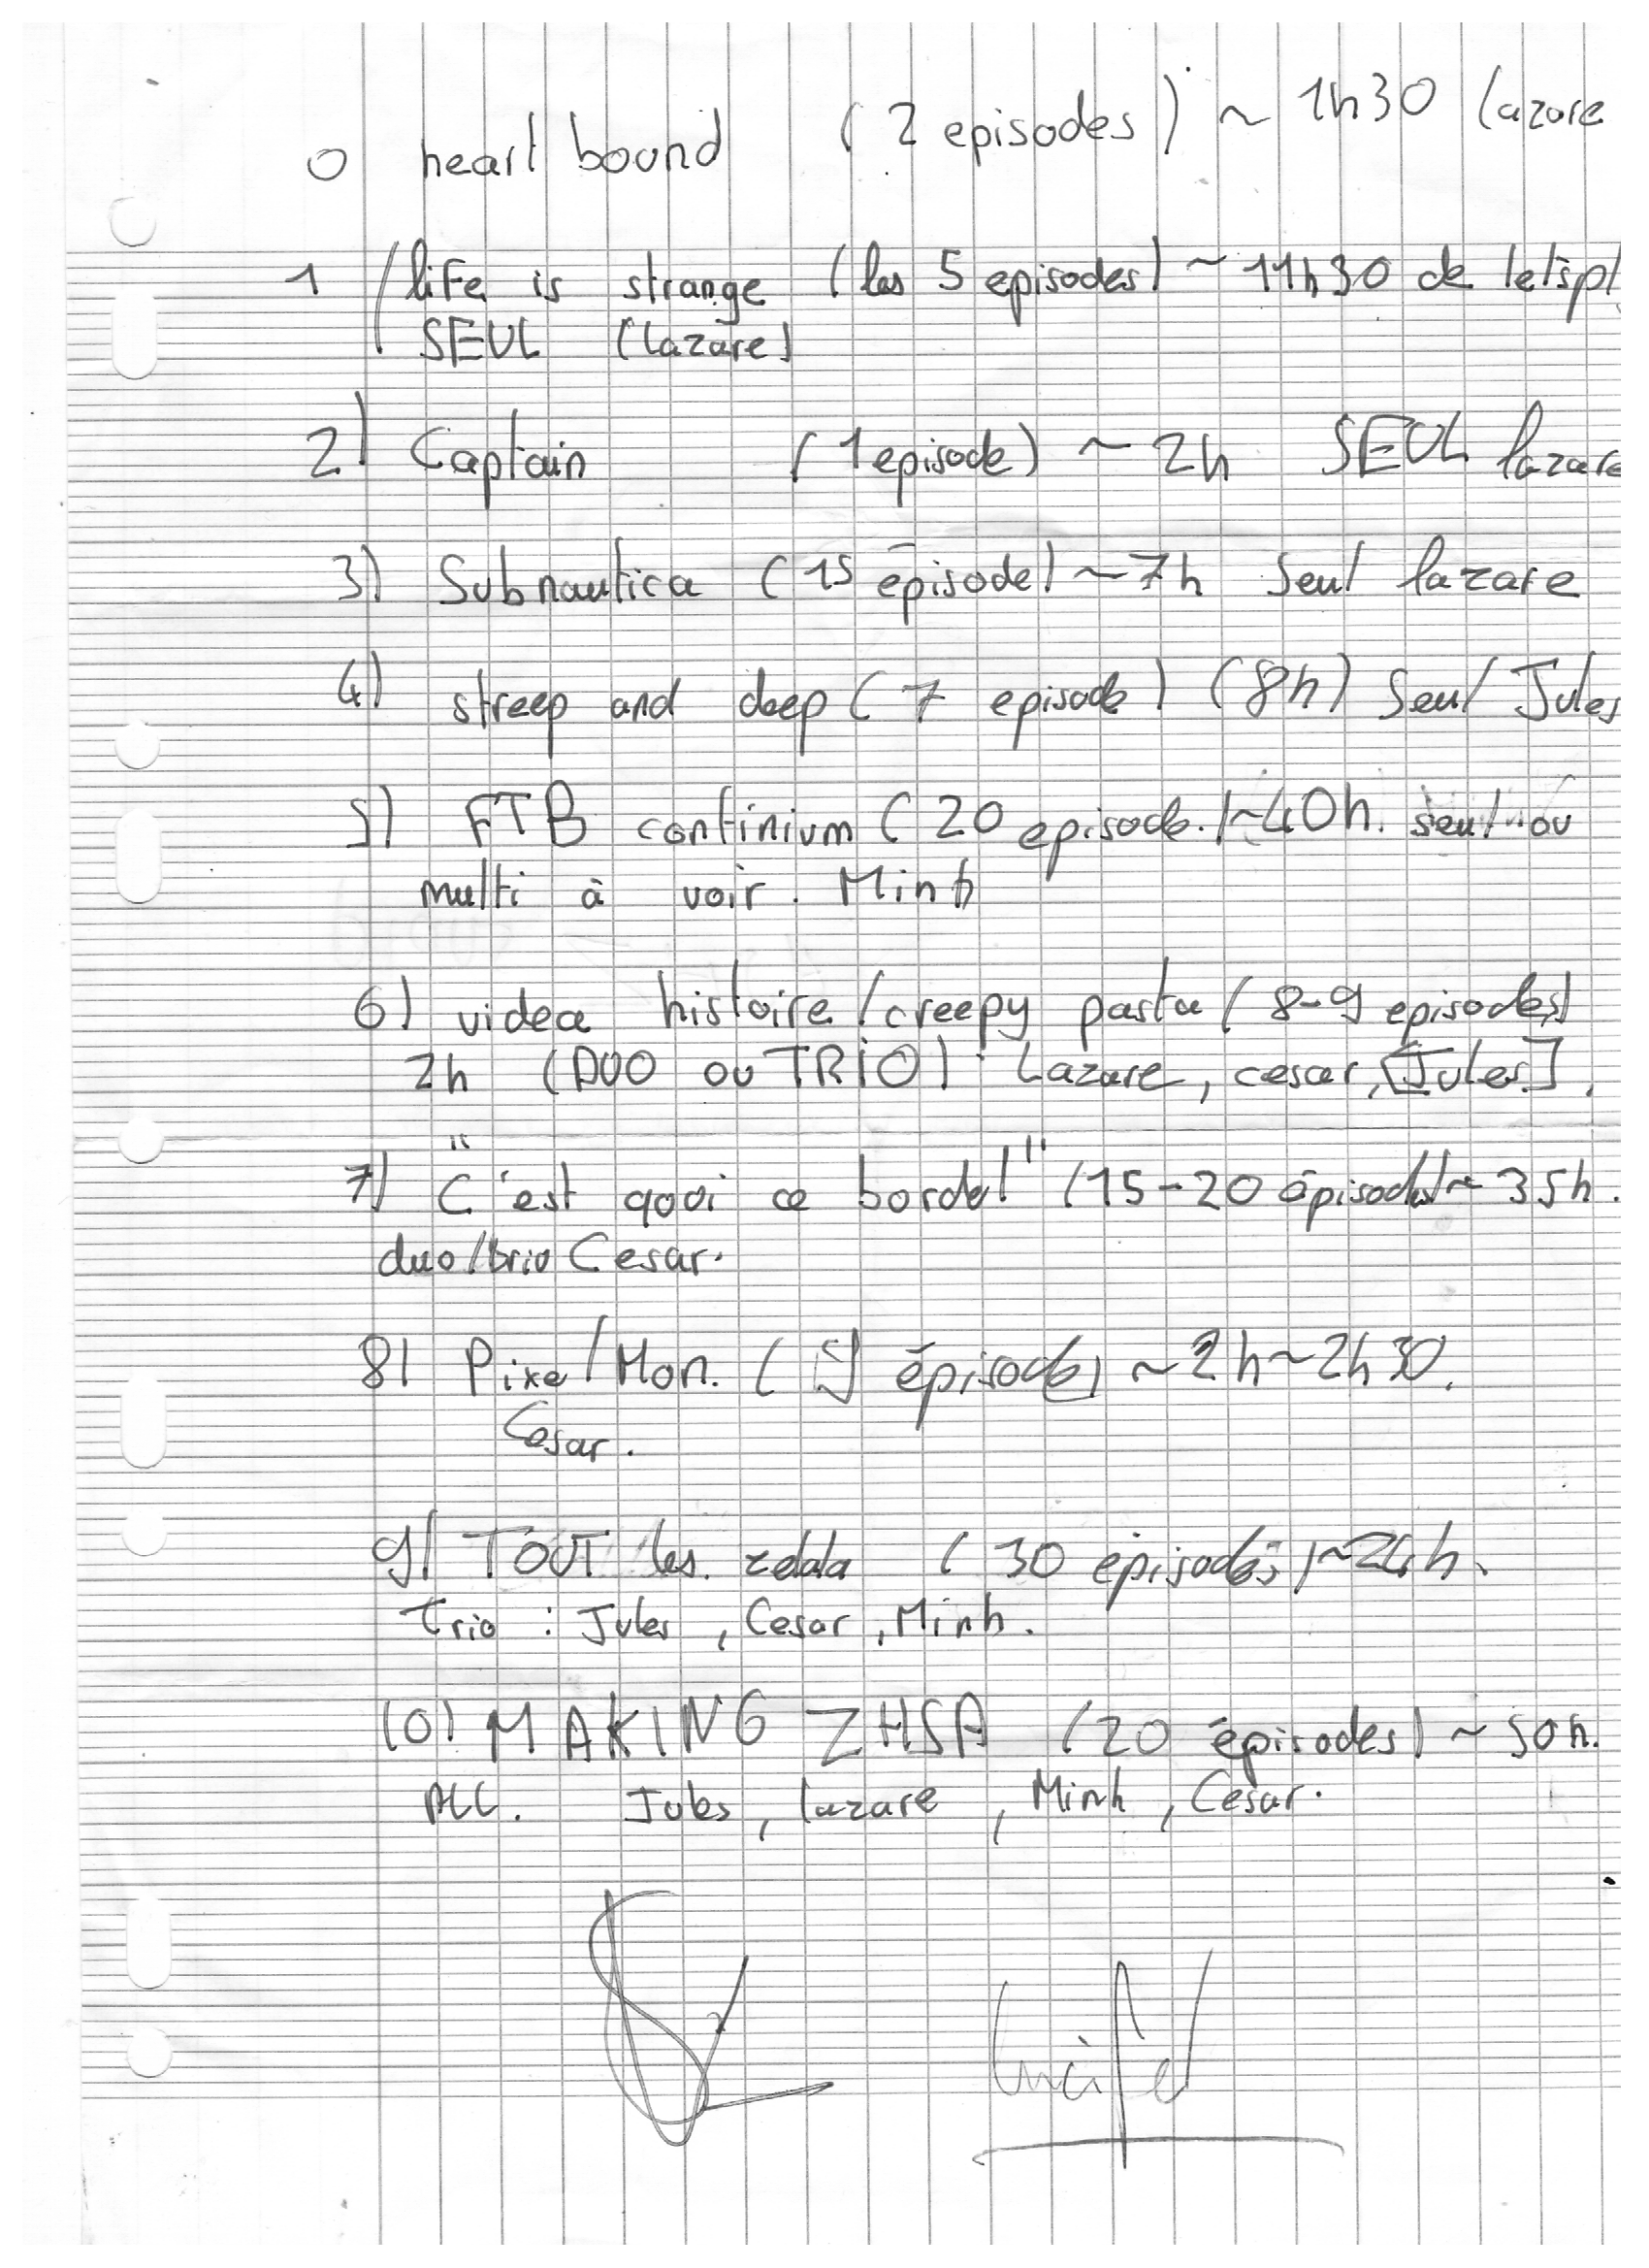 0 heart bound (2 episodes) ~ 1h30 lazare
1 life is strange (les 5 episodes) ~ 11h30 de let'spl
SEUL (lazare)
2) Captain (1 episode) ~ 2h SEUL lazare
3) Subnautica (15 épisode) ~ 7h Seul lazare
4) streep and deep (7 episode) (8h) Seul Jules
5) FTB continium (20 episode.) ~40h. seul ou
multi à voir. Minh
6) videa histoire/creepy pasta (8-9 episodes)
2h (DUO ou TRIO) Lazare, cesar, [Jules].
7) "C'est quoi ce bordel" (15-20 épisodes) ~ 35h.
duo/trio Cesar.
8) Pixel Mon. (5 épisode) ~ 2h ~ 2h30.
Cesar.
9) TOUT les. zelda (30 épisodes) ~24h.
Trio : Jules, Cesar, Minh.
10) MAKING ZHSA (20 épisodes) ~ 50h.
ALL. Jules, lazare, Minh, Cesar.